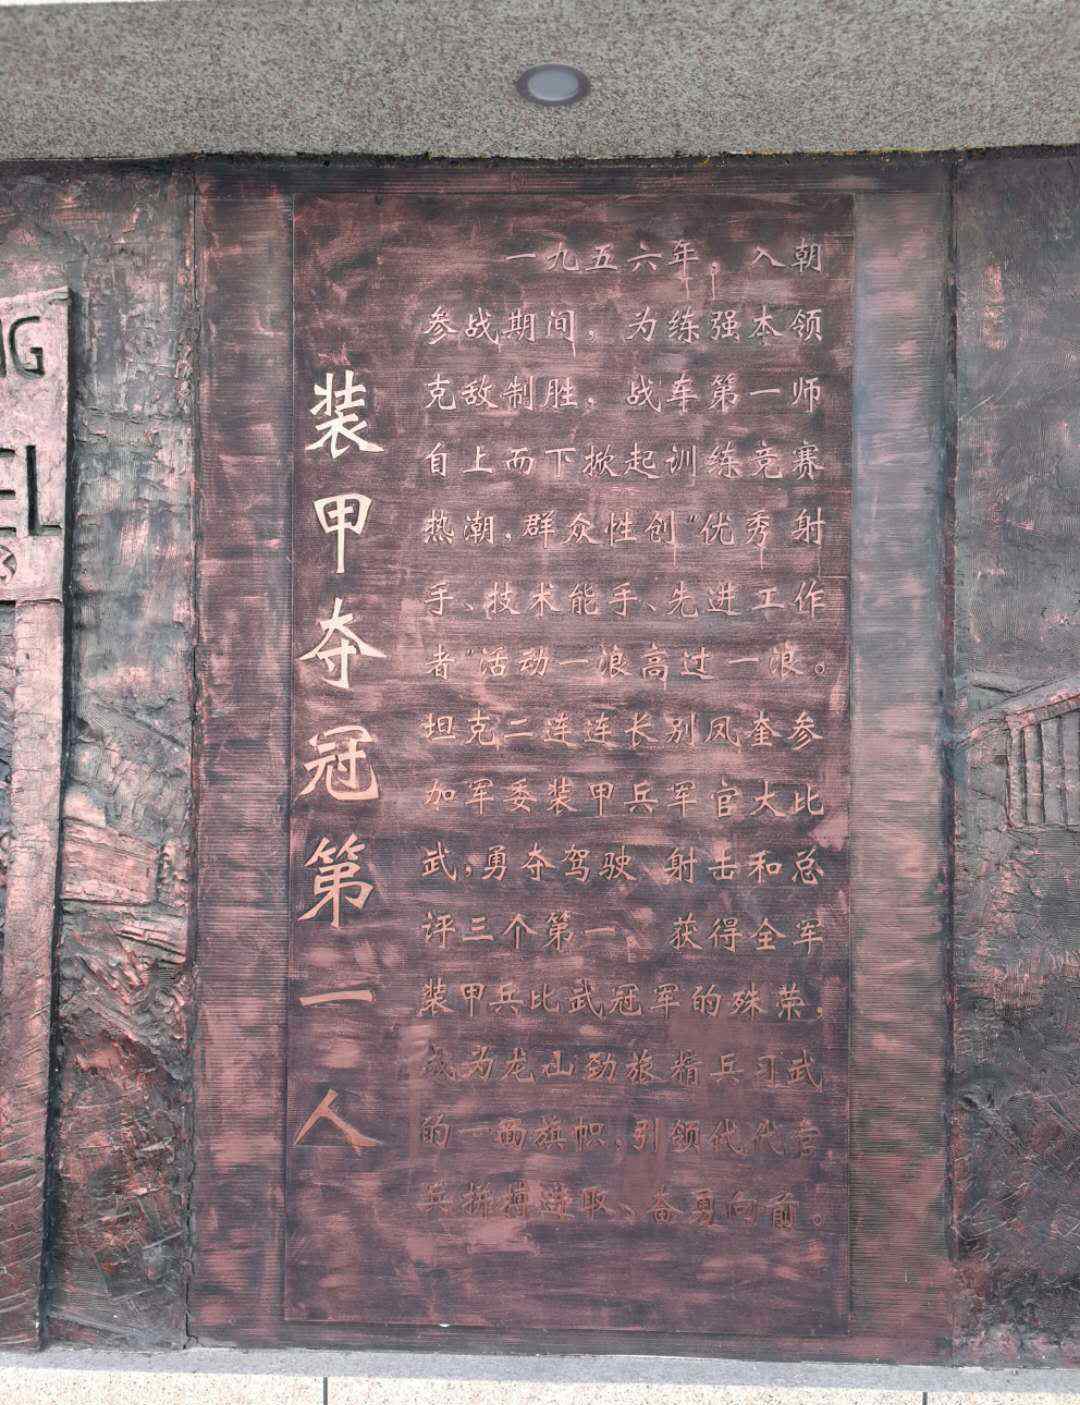 装甲夺冠第一人
一九五六年，入朝
参战期间，为练强本领
克敌制胜，战车第一师
自上而下掀起训练竞赛
热潮，群众性创“优秀射
手、技术能手、先进工作
者”活动一浪高过一浪。
坦克二连连长别凤奎参
加军委装甲兵军官大比
武，勇夺驾驶、射击和总
评三个第一，获得全军
装甲兵比武冠军的殊荣，
成为龙山劲旅精兵习武
的一面旗帜，引领代代官
兵拼搏进取、奋勇向前。
NG
EL